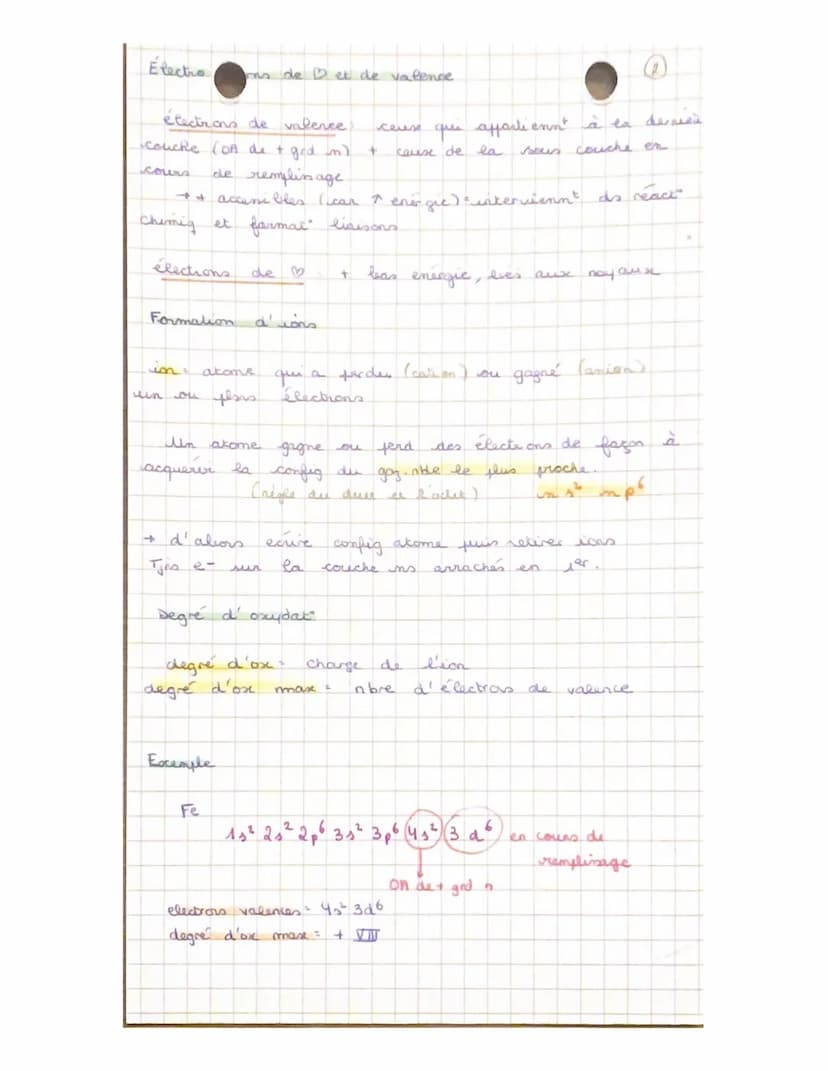 Électro ns de ♡ et de valence
2
électrons de valence: ceux qui appartiennt à la dernière
couche (OA de + grd n) + ceux de la sous couche en
cours de remplinage
→ + accessibles (car ↑ énergie) = interviennt ds réact°
chimiq et format° liaisons
électrons de ♡ + bas énergie, liés aux noyaux
Formation d'ions
ion = atome qui a perdu (cation) ou gagné (anion)
un ou plsrs électrons
Un atome gagne ou perd des électrons de façon à
acquérir la config du gaz. nble le plus proche.
(règle du duet et l'octet) ns² np⁶
→ d'abors écrire config atome puis retirer ions
Tjrs e- sur la couche ns arrachés en 1er.
Degré d'oxydat°
degré d'ox = charge de l'ion
degré d'ox max = nbre d'électrons de valence
Exemple
Fe
1s² 2s² 2p⁶ 3s² 3p⁶ 4s² 3d⁶ en cours de
remplinage
OA de + grd n
electrons valences = 4s² 3d⁶
degré d'ox max = + VIII